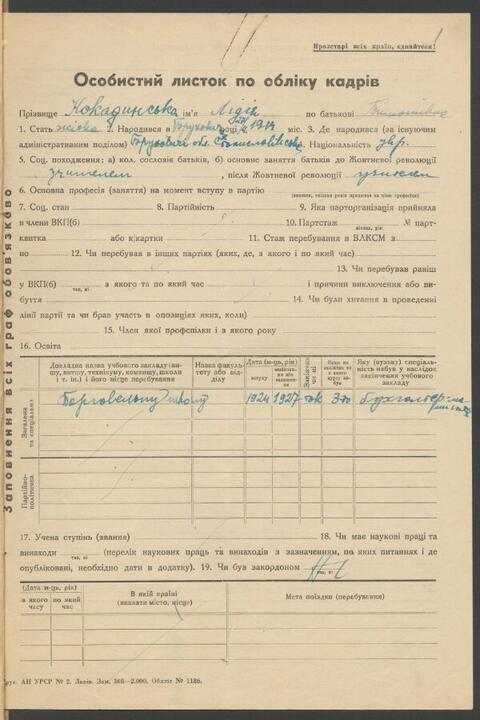 Пролетарі всіх країн, єднайтеся!
Особистий листок по обліку кадрів
Прізвище Кокадинська ім'я Лідія по батькові
1. Стать жіноча 2. Народився в році 1914 міс. 3. Де народився (за існуючим
адміністративним поділом) Національність укр.
5. Соц. походження: а) кол. сословія батьків, б) основне заняття батьків до Жовтневої революції
учителем, після Жовтневої революції учителем
6. Основна професія (заняття) на момент вступу в партію
7. Соц. стан 8. Партійність 9. Яка парторганізація прийняла
в члени ВКП(б) 10. Партстаж № парт-
місяць, рік
квитка або к/картки 11. Стаж перебування в ВЛКСМ з
по 12. Чи перебував в інших партіях (яких, де, з якого і по який час)
13. Чи перебував раніш
у ВКП(б) з якого та по який час і причини виключення або ви-
так, ні
буття 14. Чи були хитання в проведенні
лінії партії та чи брав участь в опозиціях яких, коли)
15. Член якої профспілки і з якого року
16. Освіта
Заповнення всіх граф обов'язково
Докладна назва учбового закладу (ви-
шу, втишу, технікуму, комвишу, школи
і т. ін.) і його місце перебування
Назва факуль-
тету або від-
ділу
Дата (м-ць, рік)
вступу
Закінчив
чи ні
Яку (вузьку) спеціаль-
ність набув у наслідок
закінчення учбового
закладу
Загальна
та спеціальна
1924 1927 так
Партійно-
політична
17. Учена ступінь (звання) 18. Чи має наукові праці та
винаходи (перелік наукових праць та винаходів з зазначенням, по яких питаннях і де
так, ні
опубліковані, необхідно дати в додатку). 19. Чи був закордоном Ні
так, ні
(Дата м-ць, рік)
в якого
часу
по який
час
В якій країні
(вказати місто, місце)
Мета поїздки (перебування)
Друк. АН УРСР № 2. Львів. Зам. 368—2.000. Обліт № 1186.